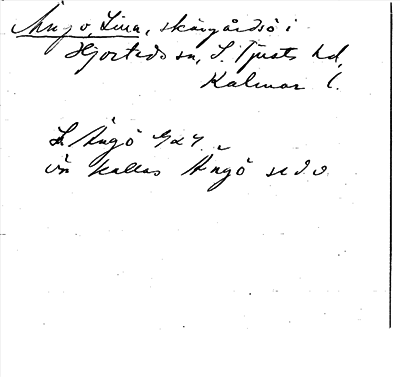 Ängö, Lilla, skärgårdsö i
Hjorteds sn, S. Tjusts hd,
Kalmar l.
L Ängö
ön kallas Ängö se d o